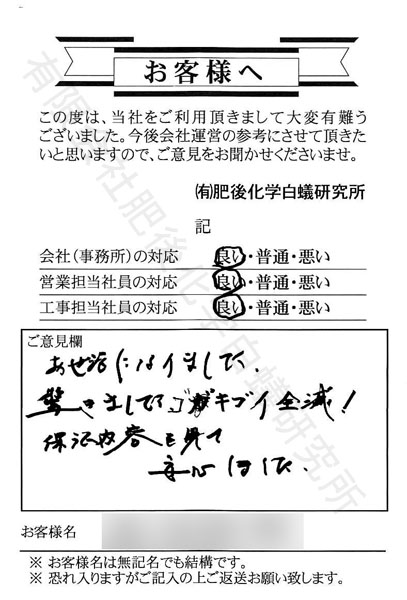 お客様へ
この度は、当社をご利用頂きまして大変有難う
ございました。今後会社運営の参考にさせて頂きた
いと思いますので、ご意見をお聞かせくださいませ。
㈲肥後化学白蟻研究所
記
会社(事務所)の対応 良い・普通・悪い
営業担当社員の対応 良い・普通・悪い
工事担当社員の対応 良い・普通・悪い
ご意見欄
お世話になりました。
驚きましたゴキブリ全滅!
保証内容を見て
安心しました。
お客様名
※ お客様名は無記名でも結構です。
※ 恐れ入りますがご記入の上ご返送お願い致します。
有限会社肥後化学白蟻研究所